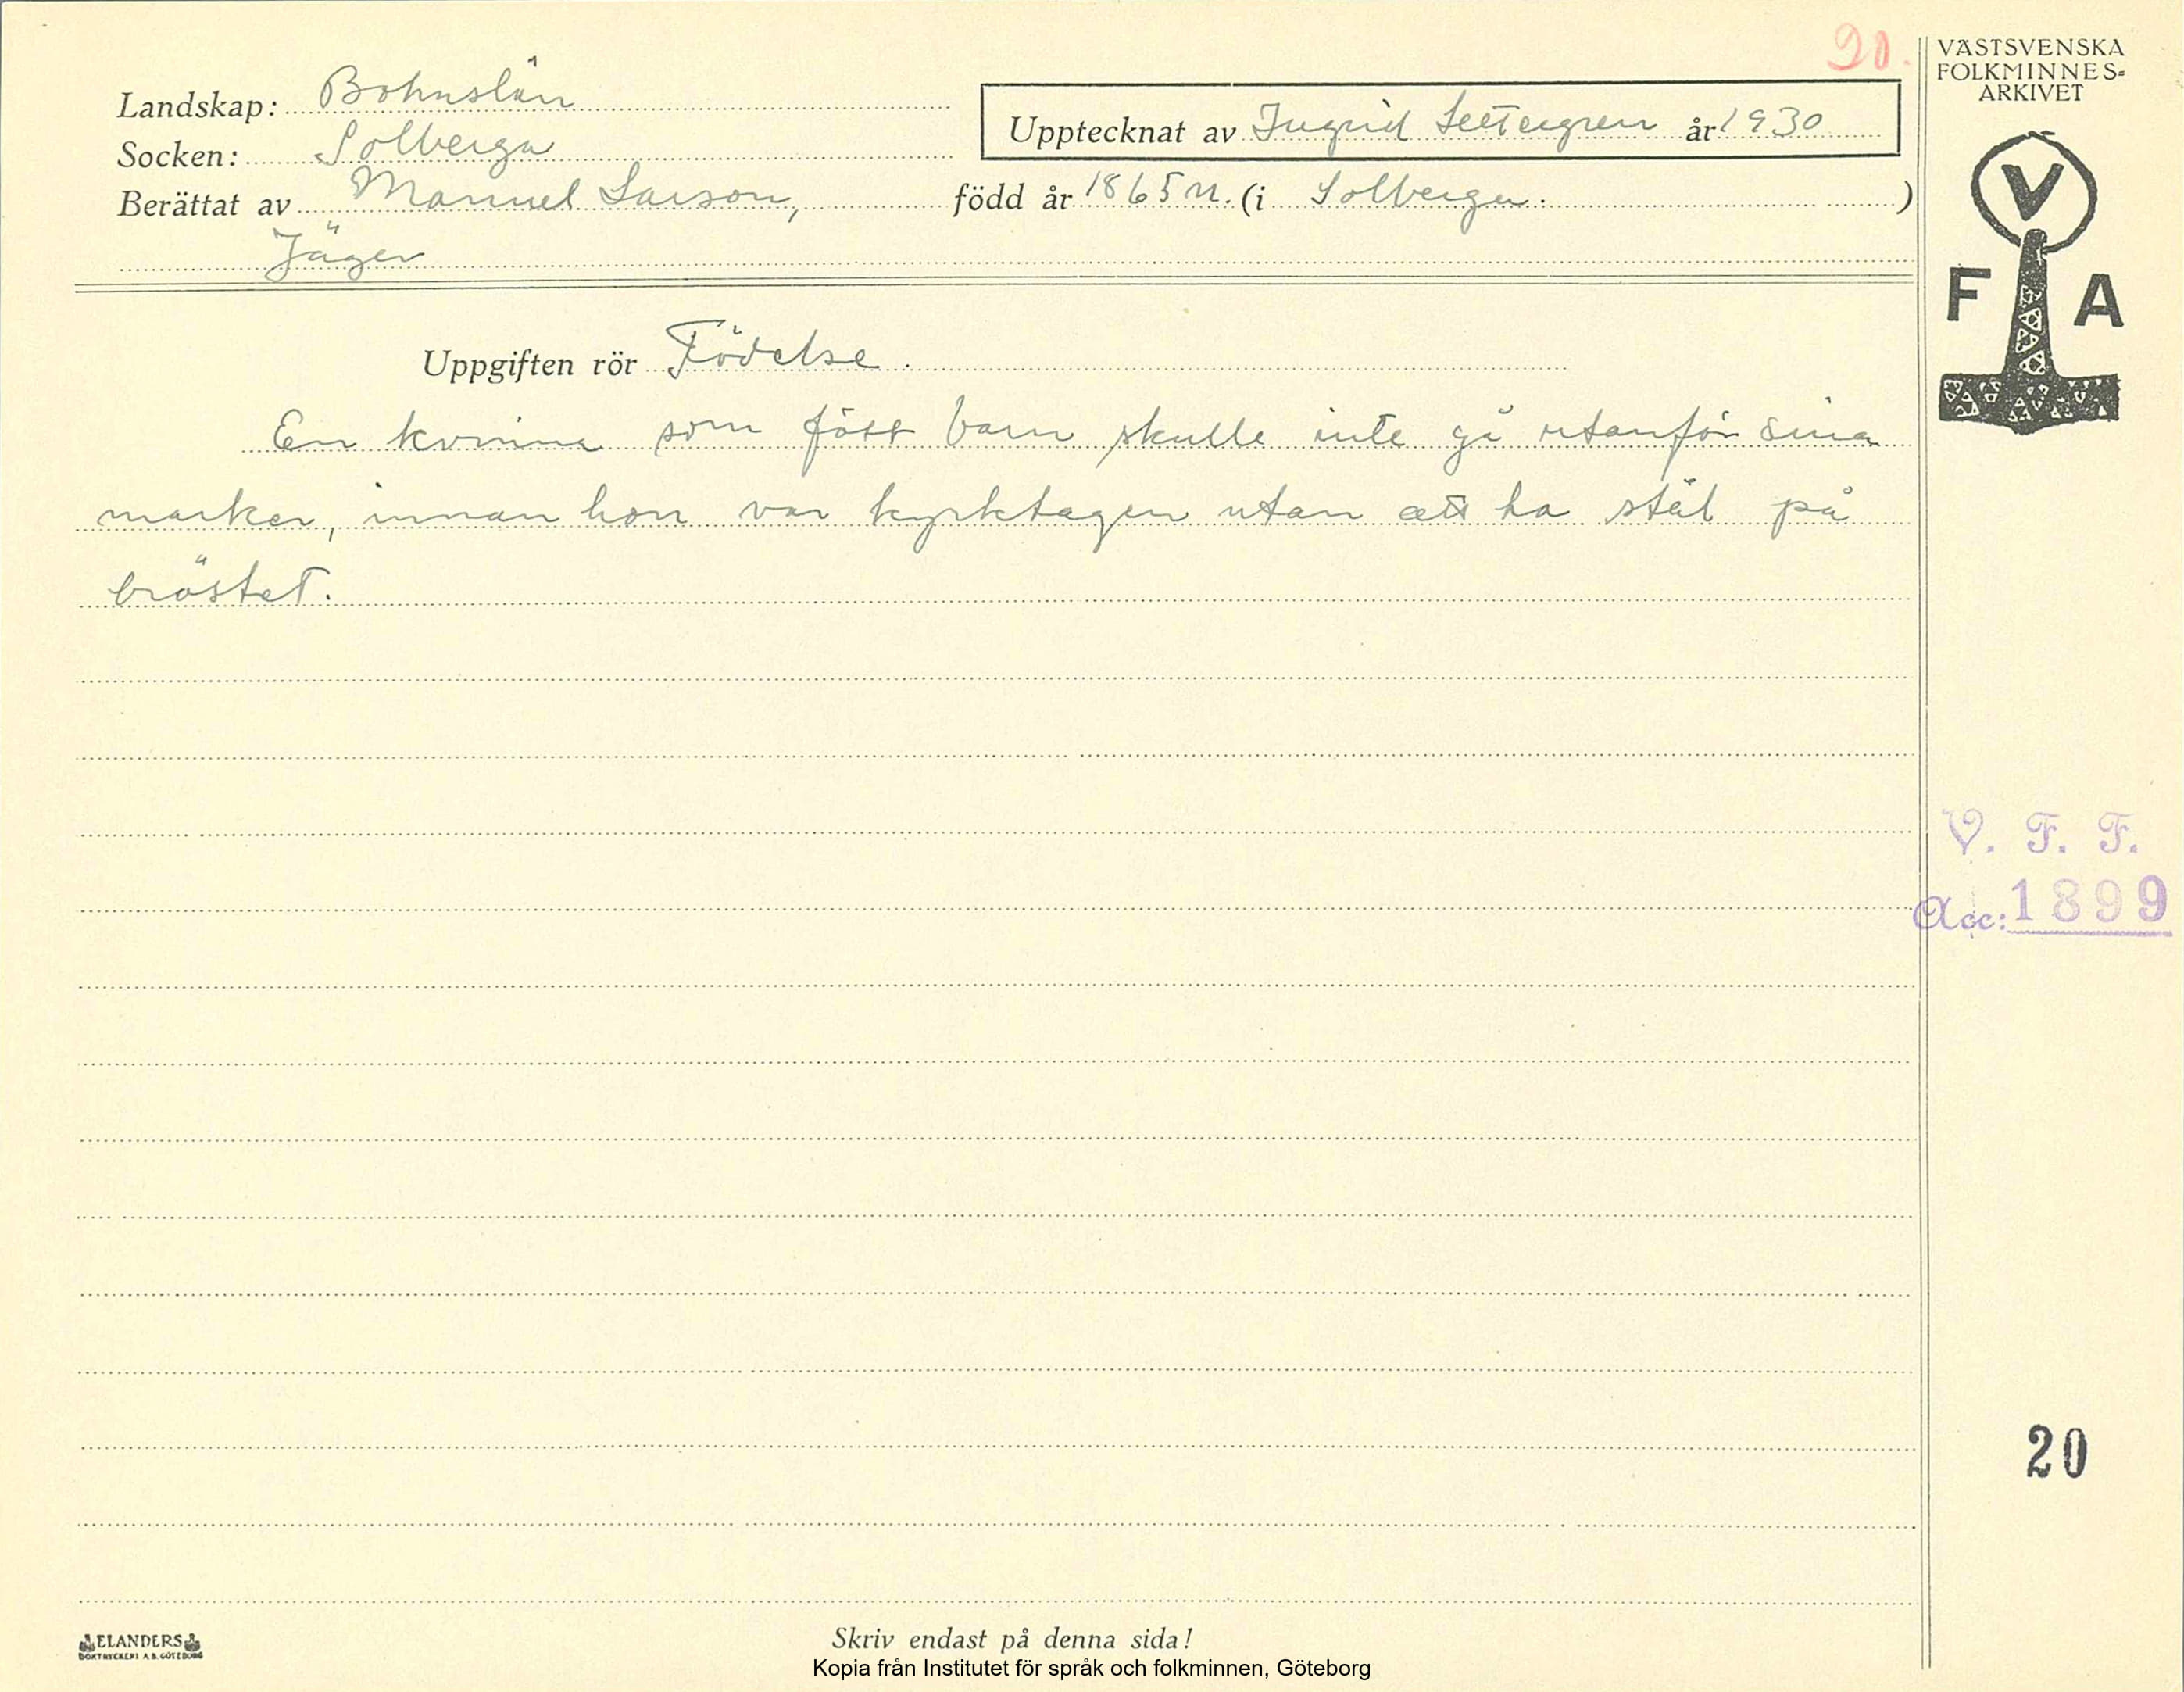 20.
VÄSTSVENSKA
FOLKMINNES-
ARKIVET
Landskap: Bohuslän
Upptecknat av Ingrid Settergren år 1930
Socken: Solberga
Berättat av Manuel Larson, född år 1865 (i Solberga.)
Jäger
V
F A
Uppgiften rör Födelse.
En kvinna som fött barn skulle inte gå utanför sina
marker, innan hon var kyrktagen utan att ha stål på
bröstet.
V. F. F.
Acc: 1899
20
ELANDERS
BOKTRYCKERI A.B. GÖTEBORG
Skriv endast på denna sida!
Kopia från Institutet för språk och folkminnen, Göteborg